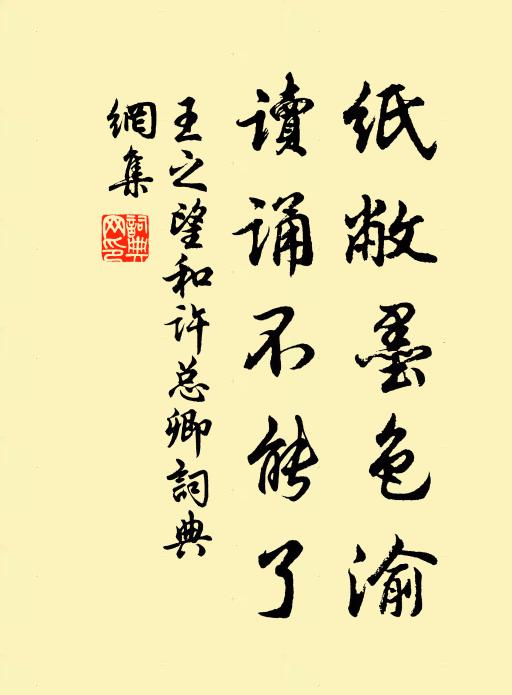 紙敝墨色渝
讀誦不能了
王之望和许总卿詞典
網集
詞典網印